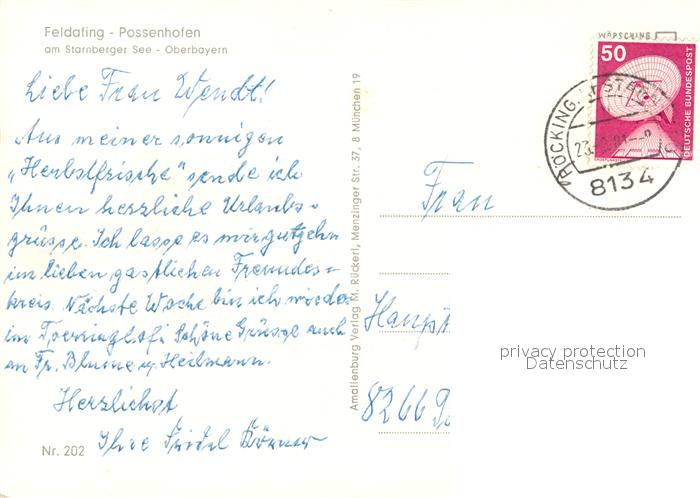 Feldafing - Possenhofen
am Starnberger See - Oberbayern
Liebe Frau Wendt!
Aus meiner sonnigen
„Herbstfrische" sende ich
Ihnen herzliche Urlaubs-
grüsse. Ich lasse es mir gutgehn
im lieben gastlichen Freundes-
kreis. Nächste Woche bin ich wieder
im Schöne Grüsse auch
an Fr. Blume u. Heilmann.
Herzlichst
Ihre
Nr. 202
Amalienburg Verlag M. Rückerl, Menzinger Str. 37, 8 München 19
50
DEUTSCHE BUNDESPOST
8134
Frau
Haupt
8266
privacy protection
Datenschutz